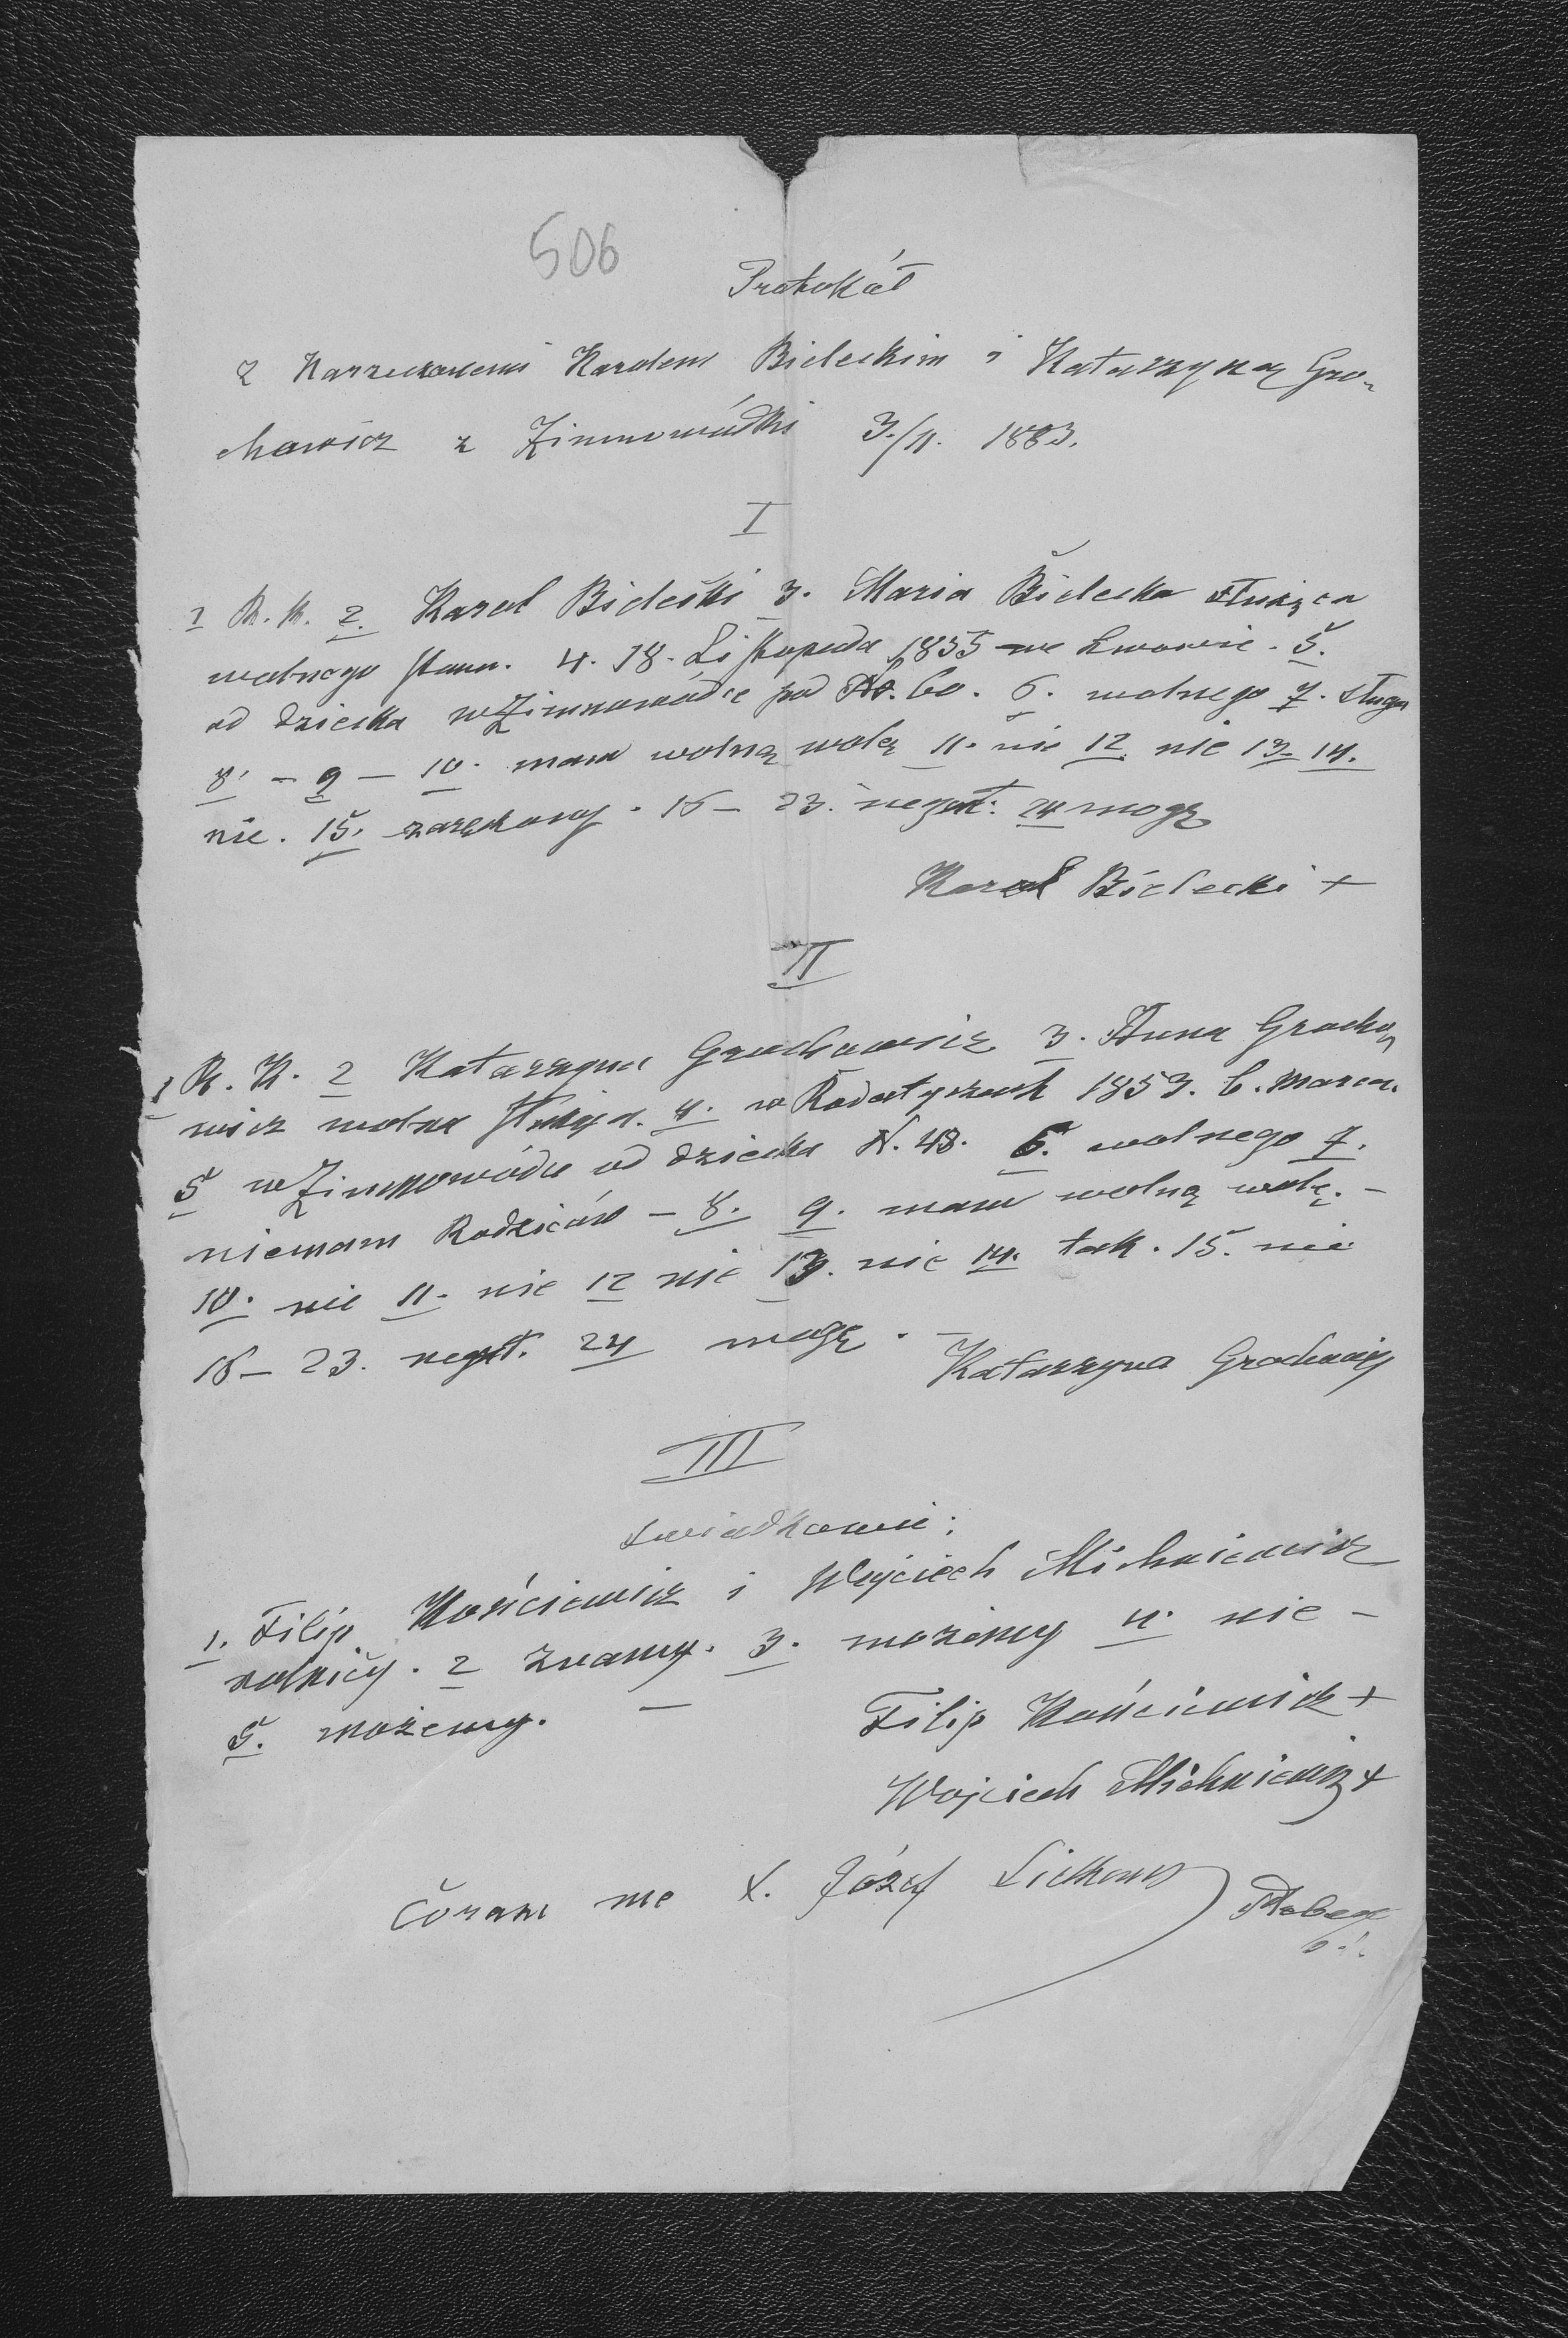 506
Protokół
z Narzeczonemi Karolem Bieleckim i Katarzyną Gro-
chowicz z Zimnowódki 3./11. 1883.
I
1 R. K. 2. Karol Bielecki 3. Maria Bielecka służąca
wolnego stanu. 4. 18. Listopada 1855 we Lwowie. 5.
od dziecka w Zimnowódce pod No. 60. 6. wolnego 7. sługa
8. – 9 – 10. mam wolną wolę 11. nie 12. nie 13. 14.
nie. 15. zaręczony. 16 – 23. negat: 24 mogę
Karol Bielecki +
II
1 R. K. 2 Katarzyna Grochowicz 3. Anna Grocho-
wicz wolna służąca. 4. w Rodatyczach 1853. 6. Marca.
5 w Zimnowódce od dziecka N. 48. 6. wolnego 7.
niemam Rodziców – 8. 9. mam wolną wolę. –
10. nie 11. nie 12 nie 13. nie 14. tak. 15. nie
16 – 23. negat. 24 mogę. –
Katarzyna Grochowicz
III
Świadkowie:
1. Filip Kościewicz i Wojciech Michniewicz
rolnicy. 2 znamy. 3. możemy 4. nie –
5. możemy. –
Filip Kościewicz +
Wojciech Michniewicz +
Coram me X. Józef